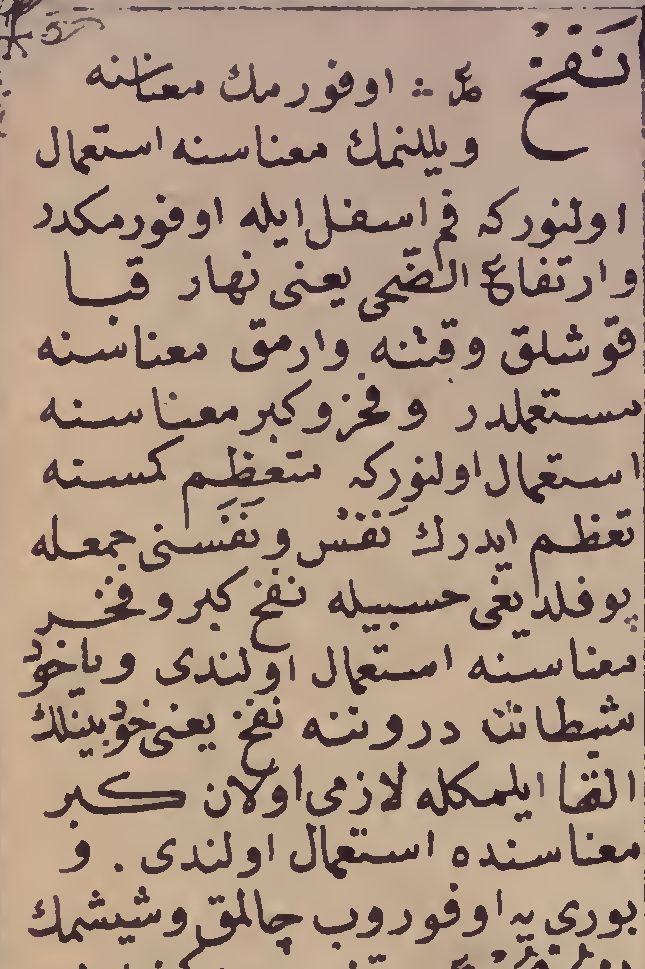 نَفْخْ ع :: اوفورمك معناسنه
ويللنمك معناسنه استعمال
اولنوركه فم اسفل ايله اوفورمكدر
وارتفاع الضّحى يعنى نهار قبا
قوشلق وقتنه وارمق معناسنه
مستعملدر وفخز وكبر معناسنه
استعمال اولنوركه متعظم كمسنه
تعظم ايدرك نَفْسْ ونَفَسَنى جمعله
پوفلديغى حسبيله نفخ كبر وفخر
معناسنه استعمال اولندى وياخوذ
شيطانك دروننه نفخ يعنى خوذبينلك
القا ايلمكله لازمى اولان كبر
معناسنده استعمال اولندى . و
بورى يه اوفوروب چالمق وشيشمك